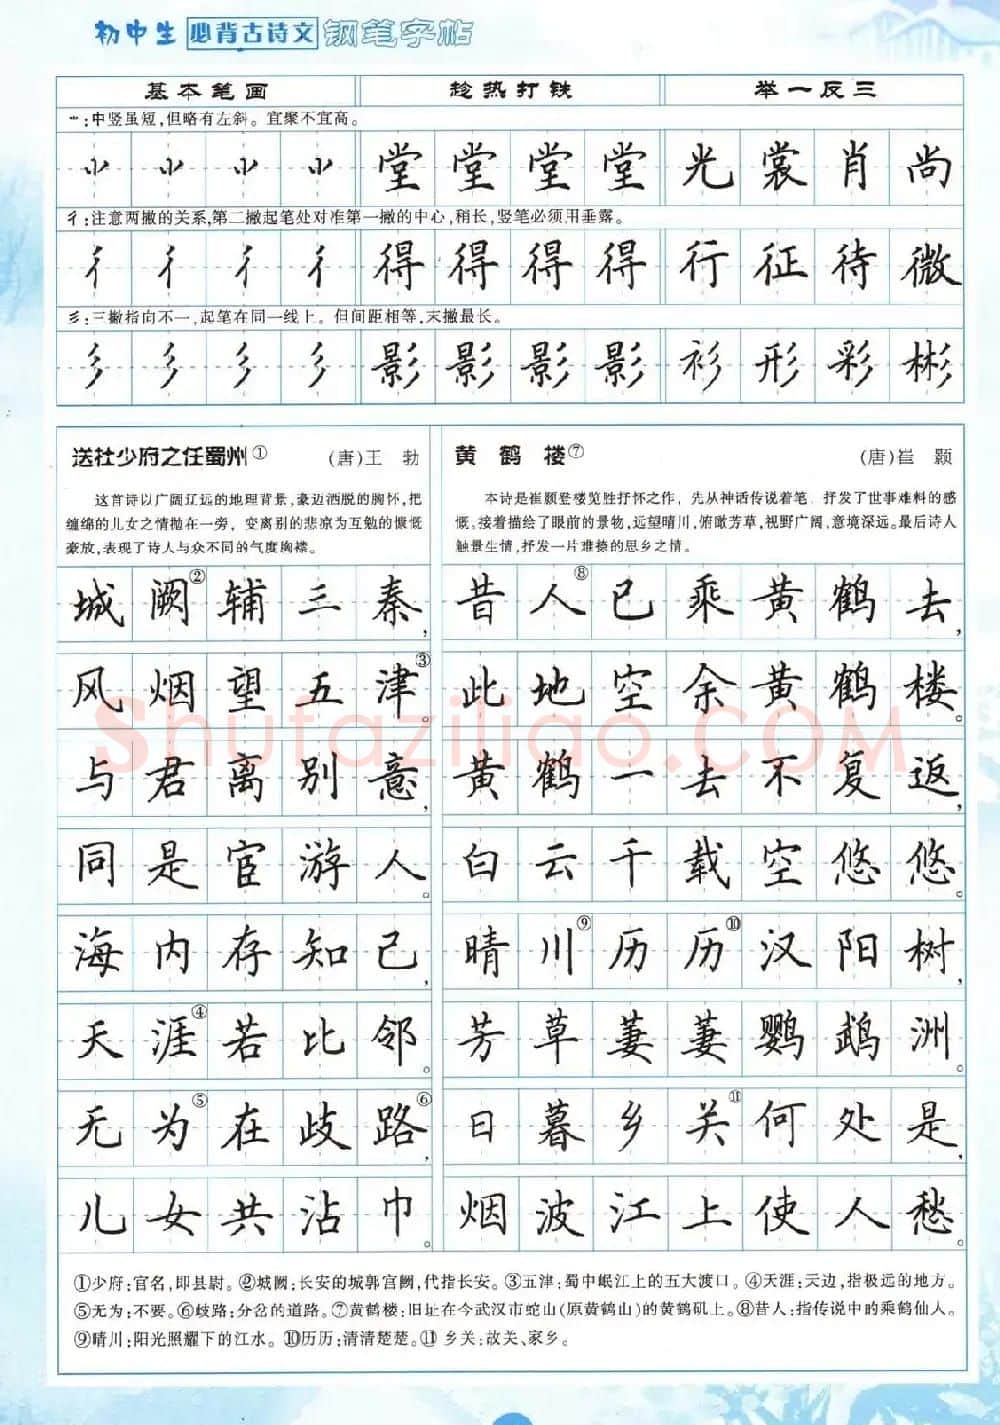 初中生 必背古诗文 钢笔字帖
基本笔画 趁热打铁 举一反三
⺌:中竖虽短,但略有左斜。宜聚不宜高。
⺌ ⺌ ⺌ ⺌ 堂 堂 堂 堂 光 裳 肖 尚
彳:注意两撇的关系,第二撇起笔处对准第一撇的中心,稍长,竖笔必须用垂露。
彳 彳 彳 彳 得 得 得 得 行 征 待 微
彡:三撇指向不一,起笔在同一线上。但间距相等,末撇最长。
彡 彡 彡 彡 影 影 影 影 衫 形 彩 彬
送杜少府之任蜀州① (唐)王 勃
这首诗以广阔辽远的地理背景,豪迈洒脱的胸怀,把
缠绵的儿女之情抛在一旁，变离别的悲凉为互勉的慷慨
豪放,表现了诗人与众不同的气度胸襟。
城阙②辅三秦,
风烟望五津③。
与君离别意,
同是宦游人。
海内存知己,
天涯④若比邻。
无为⑤在歧路⑥,
儿女共沾巾。
黄 鹤 楼⑦ (唐)崔 颢
本诗是崔颢登楼览胜抒怀之作，先从神话传说着笔，抒发了世事难料的感
慨;接着描绘了眼前的景物,远望晴川,俯瞰芳草,视野广阔,意境深远。最后诗人
触景生情,抒发一片难捺的思乡之情。
昔人⑧已乘黄鹤去,
此地空余黄鹤楼。
黄鹤一去不复返,
白云千载空悠悠。
晴川⑨历历⑩汉阳树,
芳草萋萋鹦鹉洲。
日暮乡关⑪何处是,
烟波江上使人愁。
①少府:官名,即县尉。②城阙:长安的城郭宫阙,代指长安。③五津:蜀中岷江上的五大渡口。④天涯:云边,指极远的地方。
⑤无为:不要。⑥歧路:分岔的道路。⑦黄鹤楼:旧址在今武汉市蛇山(原黄鹤山)的黄鹤矶上。⑧昔人:指传说中的乘鹤仙人。
⑨晴川:阳光照耀下的江水。⑩历历:清清楚楚。⑪乡关:故关、家乡。
Shufaziliao.COM